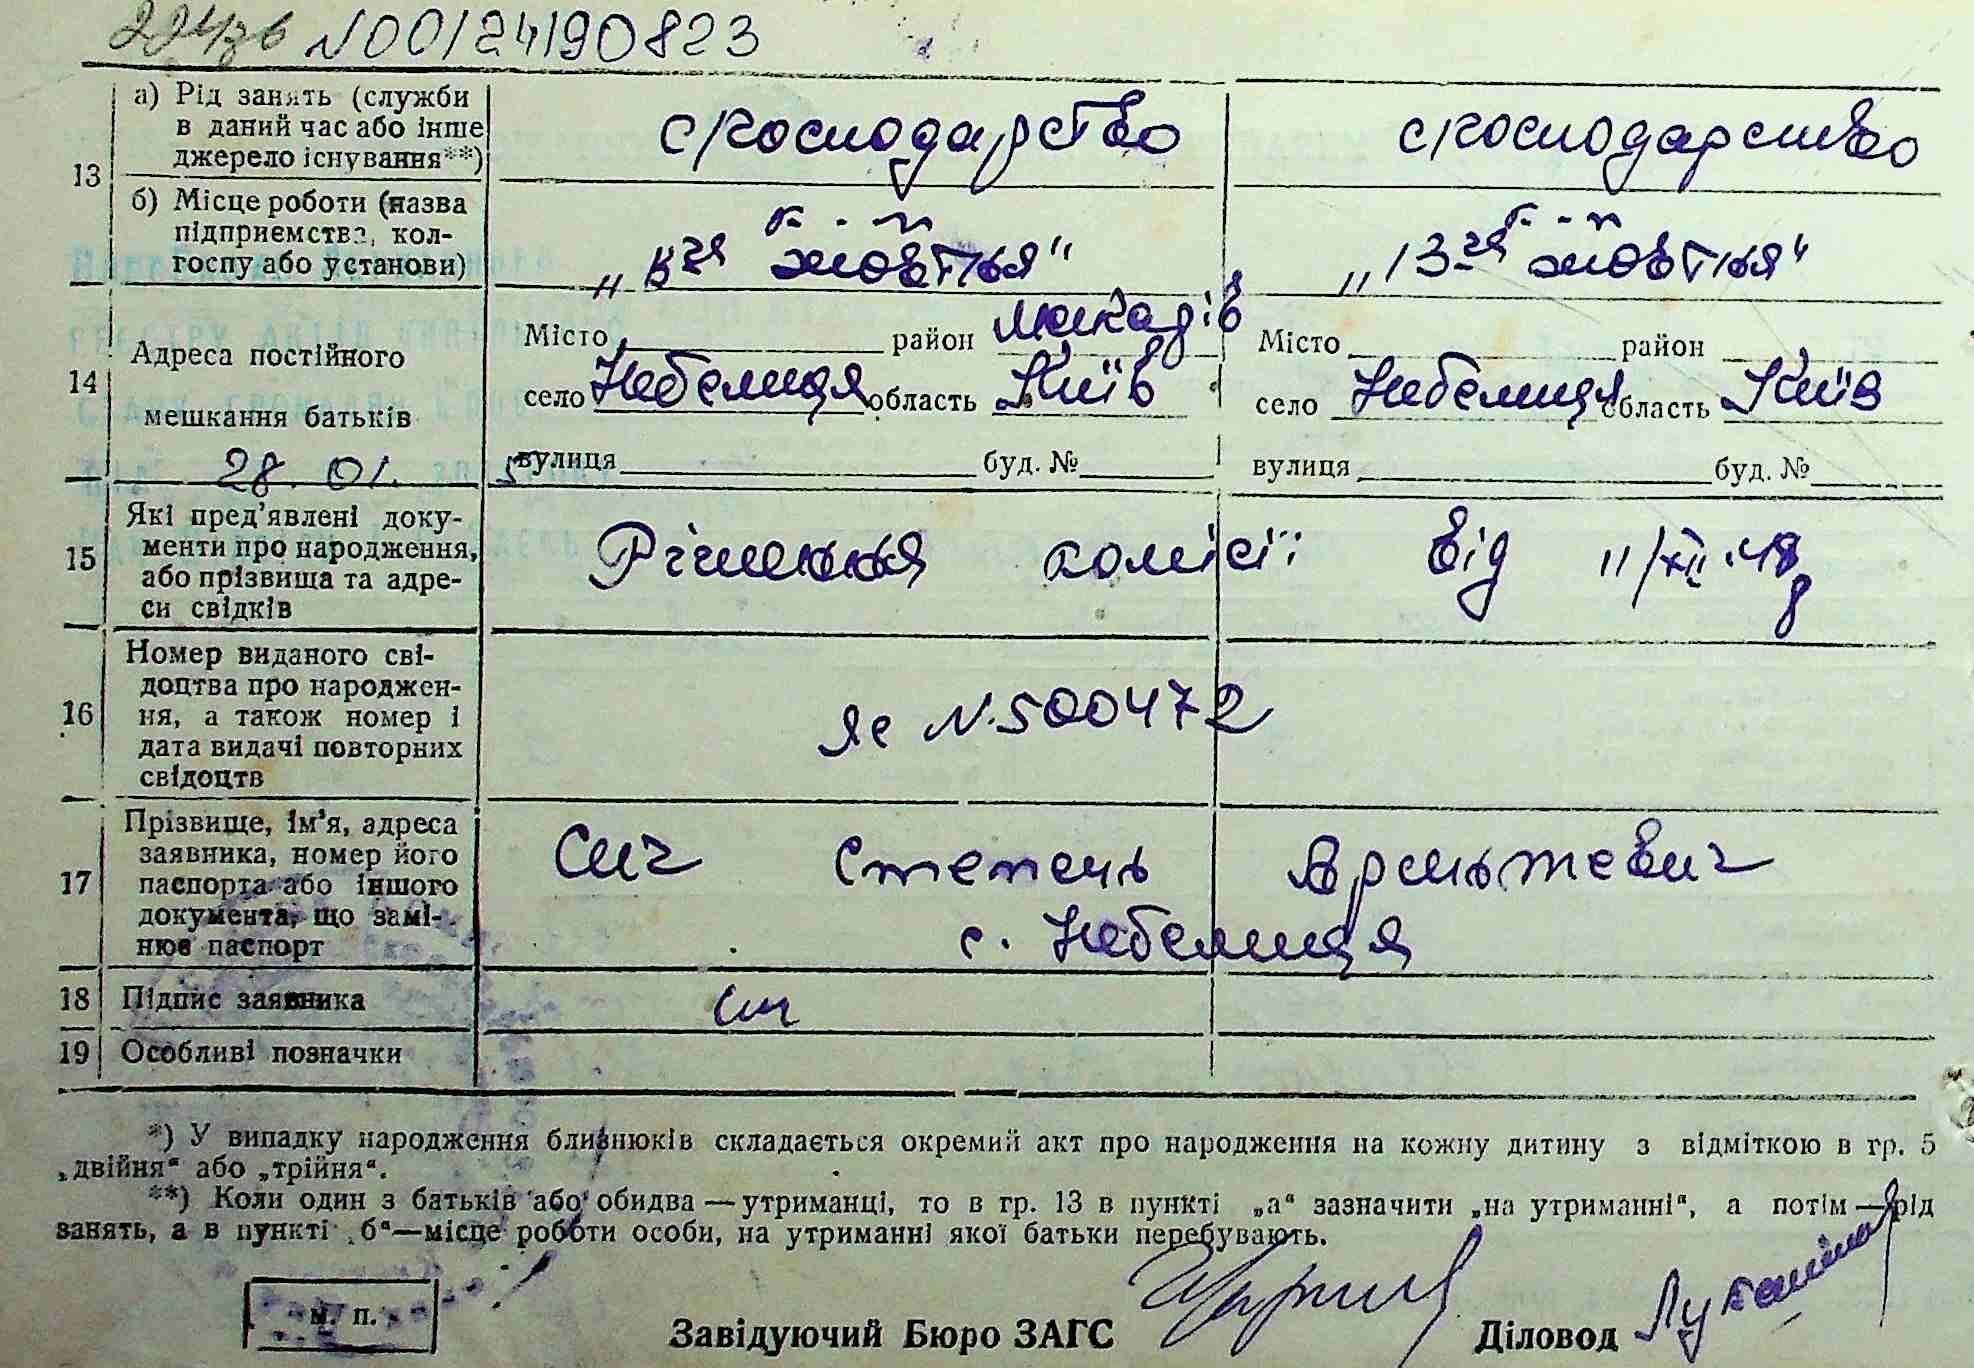 N00124190823
13
а) Рід занять (служби
в даний час або інше
джерело існування**)
с господарство
с господарство
б) Місце роботи (назва
підприємства, кол-
госпу або установи)
к - п
„13 га жовтня"
к - п
„13-га жовтня"
14
Адреса постійного
мешкання батьків
28. 01. 5
Місто район Макарів
село Небелиця область Київ
вулиця буд. №
Місто район
село Небелиця область Київ
вулиця буд. №
15
Які пред'явлені доку-
менти про народження,
або прізвища та адре-
си свідків
Рішення комісії від 11/XII 48 р
16
Номер виданого сві-
доцтва про народжен-
ня, а також номер і
дата видачі повторних
свідоцтв
ЯЄ N.500472
17
Прізвище, ім'я, адреса
заявника, номер його
паспорта або іншого
документа, що замі-
нює паспорт
Сич Степень
с. Небелиця
18
Підпис заявника
Сич
19
Особливі позначки
*) У випадку народження близнюків складається окремий акт про народження на кожну дитину з відміткою в гр. 5
„двійня" або „трійня".
**) Коли один з батьків або обидва — утриманці, то в гр. 13 в пункті „а" зазначити „на утриманні", а потім — рід
занять, а в пункті „б"—місце роботи особи, на утриманні якої батьки перебувають.
м. п.
Завідуючий Бюро ЗАГС
Діловод